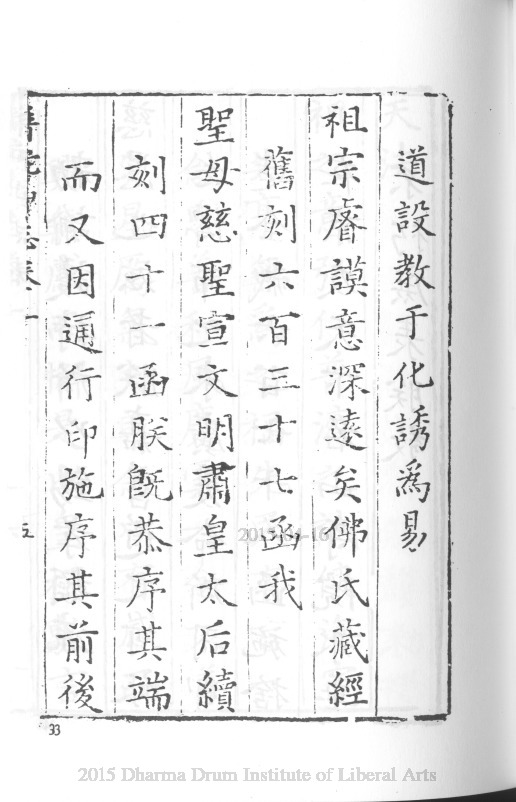 道設教于化誘為易
祖宗睿謨意深遠矣佛氏藏經
舊刻六百三十七函我
聖母慈聖宣文明肅皇太后續
刻四十一函朕既恭序其端
而又因通行印施序其前後
志卷一
五
33
2015-04-16
2015 Dharma Drum Institute of Liberal Arts